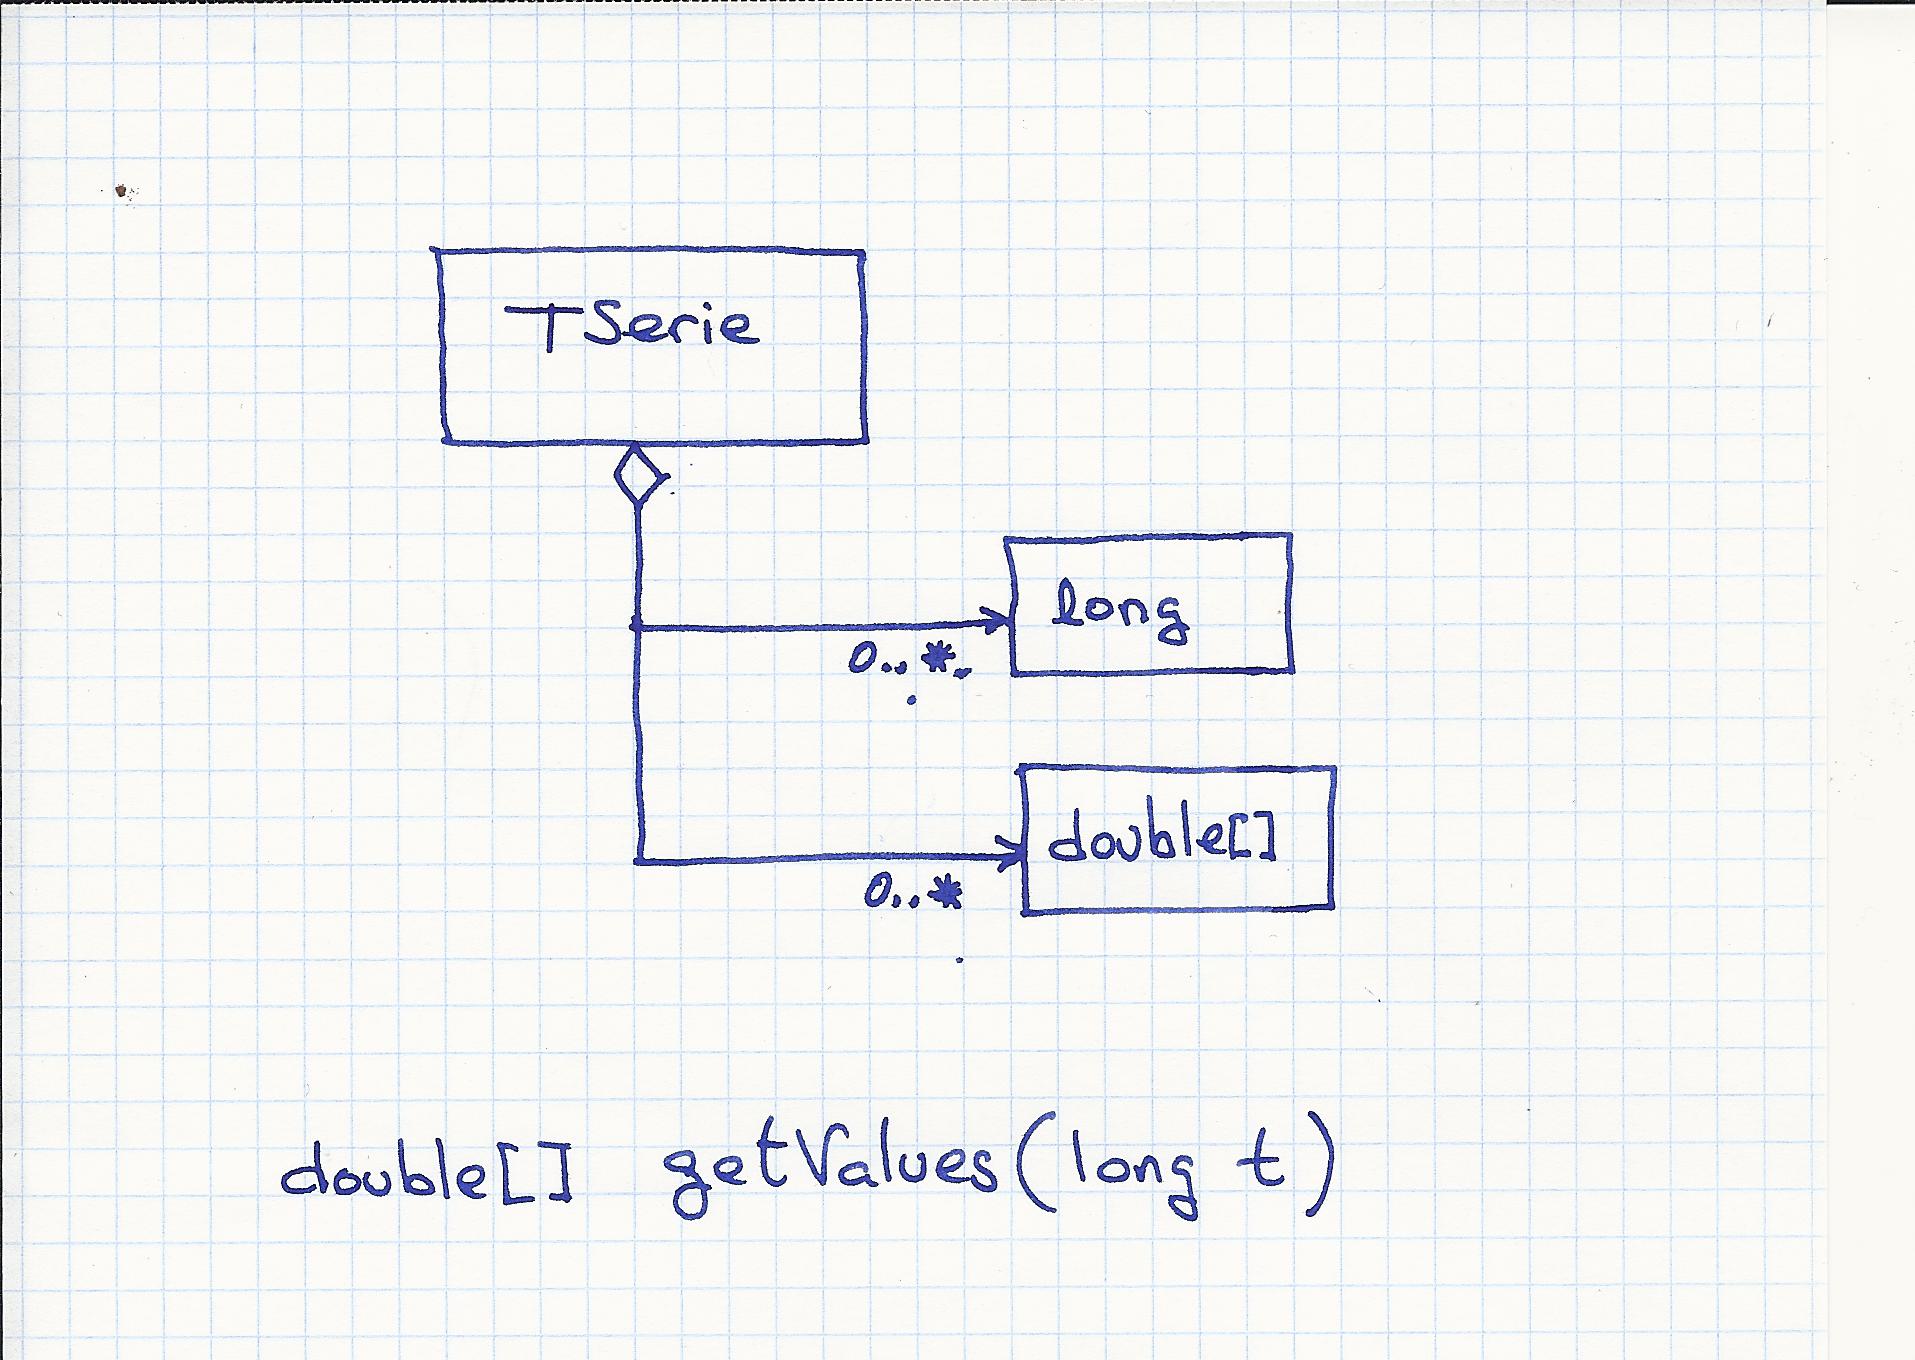 TSerie
long
0..*
double[]
0..*
double[] getValues(long t)